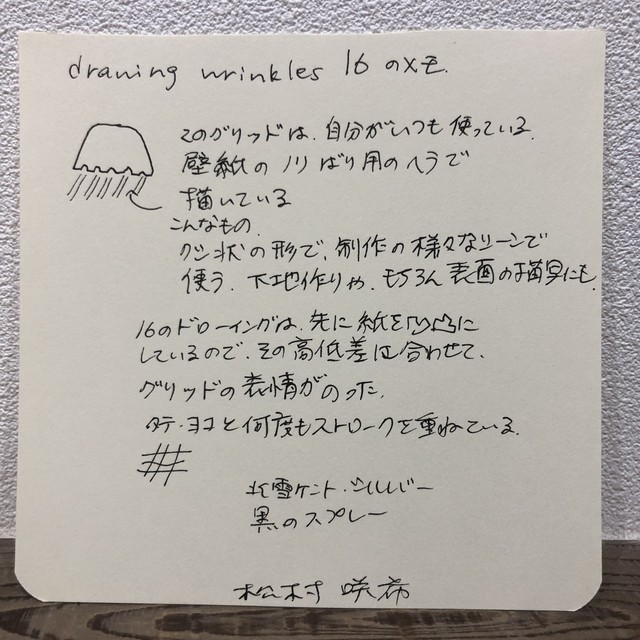 drawing wrinkles 16 のメモ.
このグリッドは、自分がいつも使っている.
壁紙のノリばり用のヘラで
描いている
こんなもの.
クシ状の形で、制作の様々なシーンで
使う. 下地作りや、もちろん表面の描写にも.
16のドローイングは、先に紙を
にしているので、その高低差に合わせて、
グリッドの表情がのった.
タテ・ヨコと何度もストロークを重ねている.
北雪ケント・シルバー
黒のスプレー
松村咲希